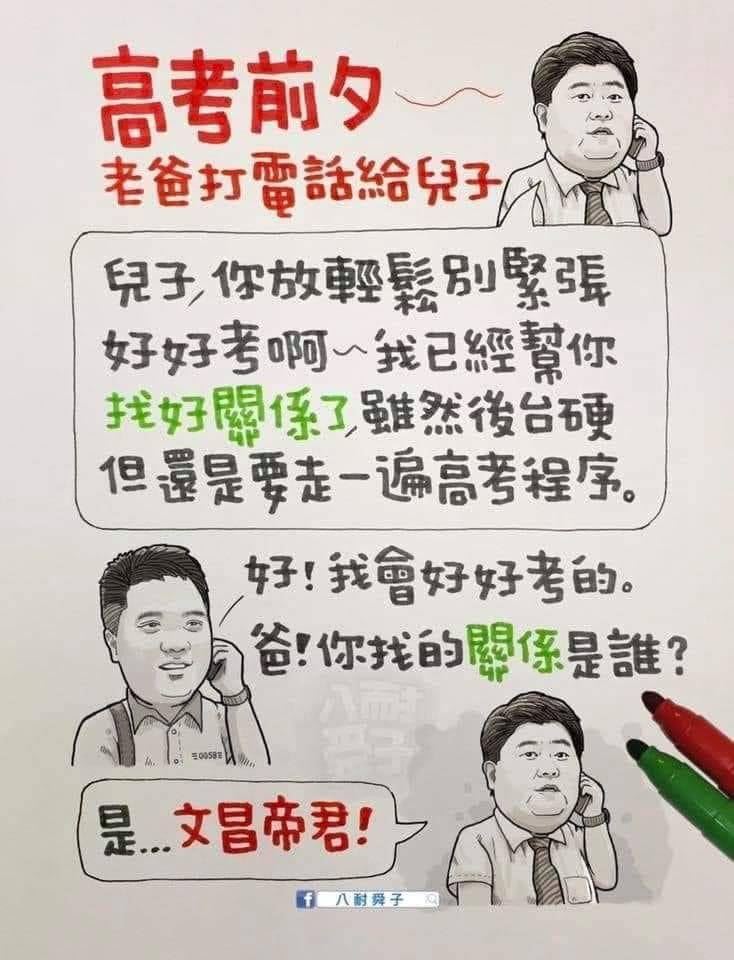 高考前夕～
老爸打電話給兒子
兒子,你放輕鬆別緊張
好好考啊～我已經幫你
找好關係了,雖然後台硬
但還是要走一遍高考程序。
好!我會好好考的。
爸!你找的關係是誰?
EGGSBE
是...文昌帝君!
八耐舜子
f 八耐舜子